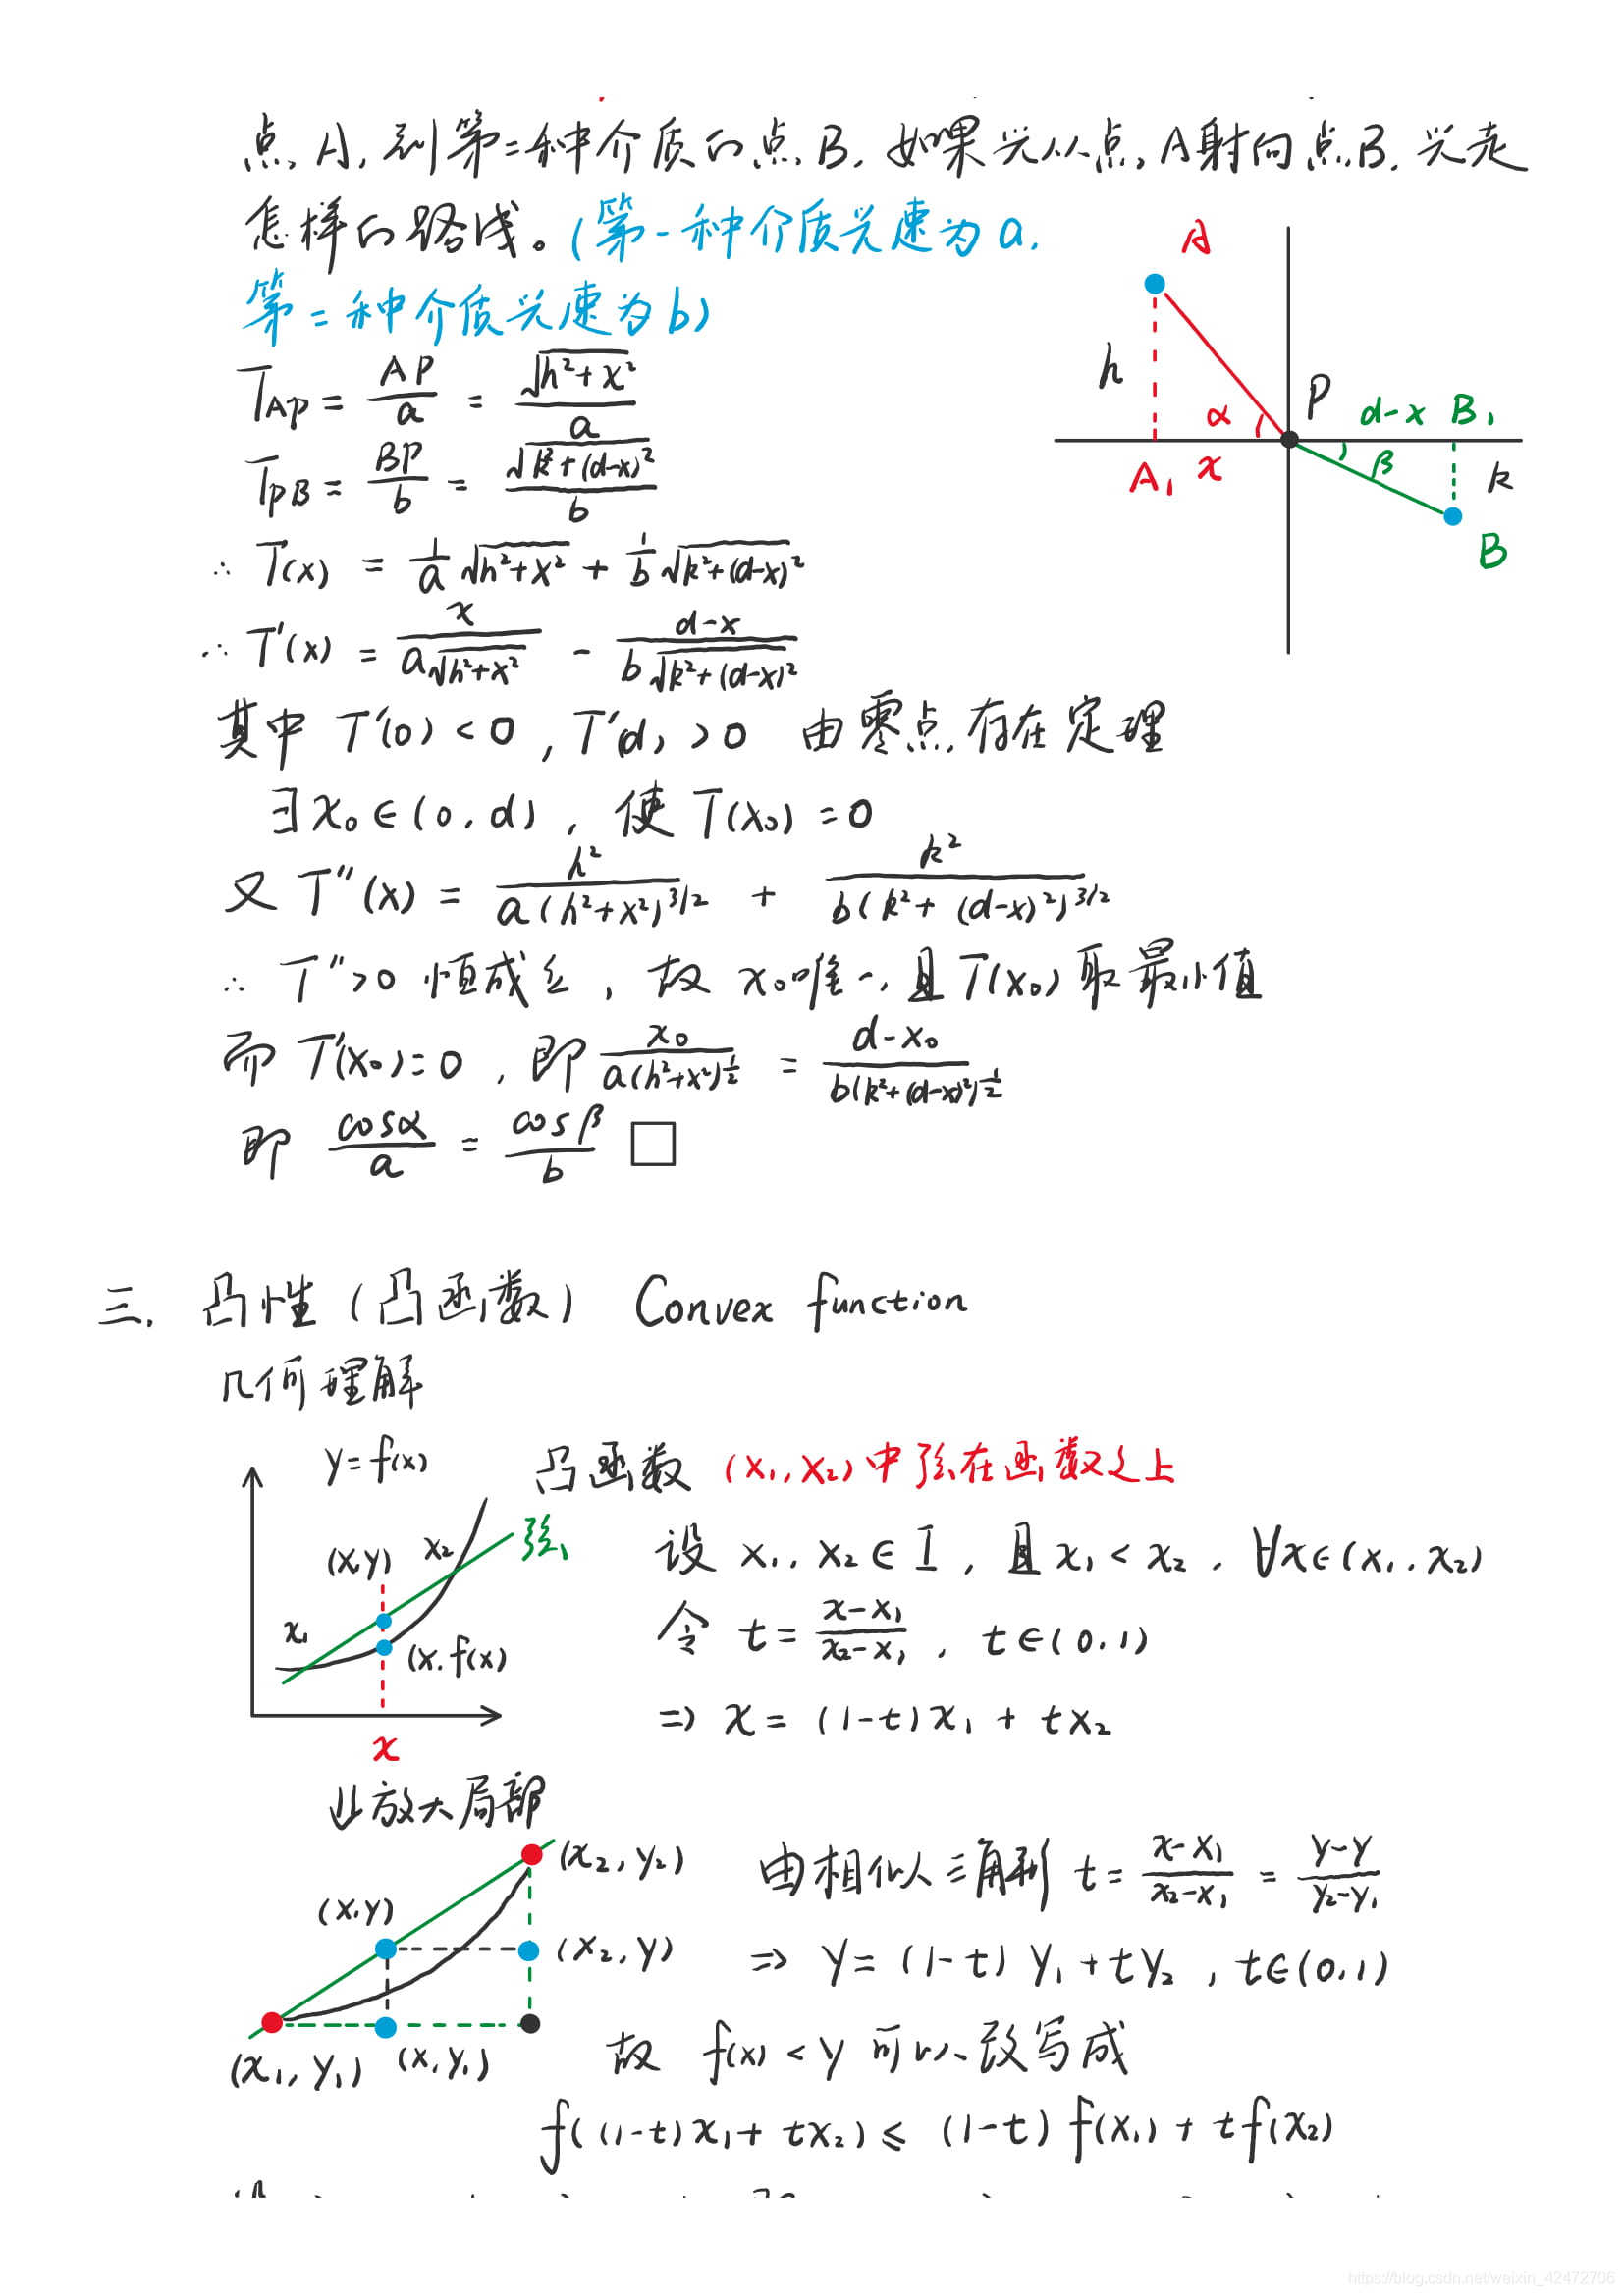 点A，到第二种介质的点B，如果光从点A射向点B，光走
怎样的路线。(第一种介质光速为a，
第二种介质光速为b)
T_AP = AP/a = √(h²+x²)/a
T_PB = BP/b = √(k²+(d-x)²)/b
∴ T(x) = 1/a √(h²+x²) + 1/b √(k²+(d-x)²)
∴ T'(x) = x/(a√(h²+x²)) - (d-x)/(b√(k²+(d-x)²))
其中 T'(0) < 0 , T'(d) > 0 由零点存在定理
∃ x₀ ∈ (0, d) , 使 T(x₀) = 0
又 T''(x) = h²/(a(h²+x²)^3/2) + k²/(b(k²+(d-x)²)^3/2)
∴ T''>0 恒成立，故 x₀唯一，且T(x₀)取最小值
而 T'(x₀)=0 , 即 x₀/(a(h²+x²)^1/2) = (d-x₀)/(b(k²+(d-x)²)^1/2)
即 cosα/a = cosβ/b □
A
h
P
α
d-x B₁
A₁ x
β
k
B
三. 凸性 (凸函数) Convex function
几何理解
y=f(x)
凸函数 (x₁,x₂)中弦在函数之上
弦
(x,y)
x₂
x₁
(x,f(x))
x
设 x₁, x₂ ∈ I , 且 x₁ < x₂ , ∀x∈(x₁, x₂)
令 t = (x-x₁)/(x₂-x₁) , t∈(0,1)
⇒ x = (1-t)x₁ + tx₂
⇓放大局部
(x₂,y₂)
(x,y)
(x₂,y)
(x₁,y₁)
(x,y₁)
由相似三角形 t = (x-x₁)/(x₂-x₁) = (y-y)/(y₂-y₁)
⇒ y = (1-t)y₁+ty₂ , t∈(0,1)
故 f(x) < y 可以改写成
f((1-t)x₁+tx₂) ≤ (1-t)f(x₁)+tf(x₂)
https://blog.csdn.net/weixin_42472706